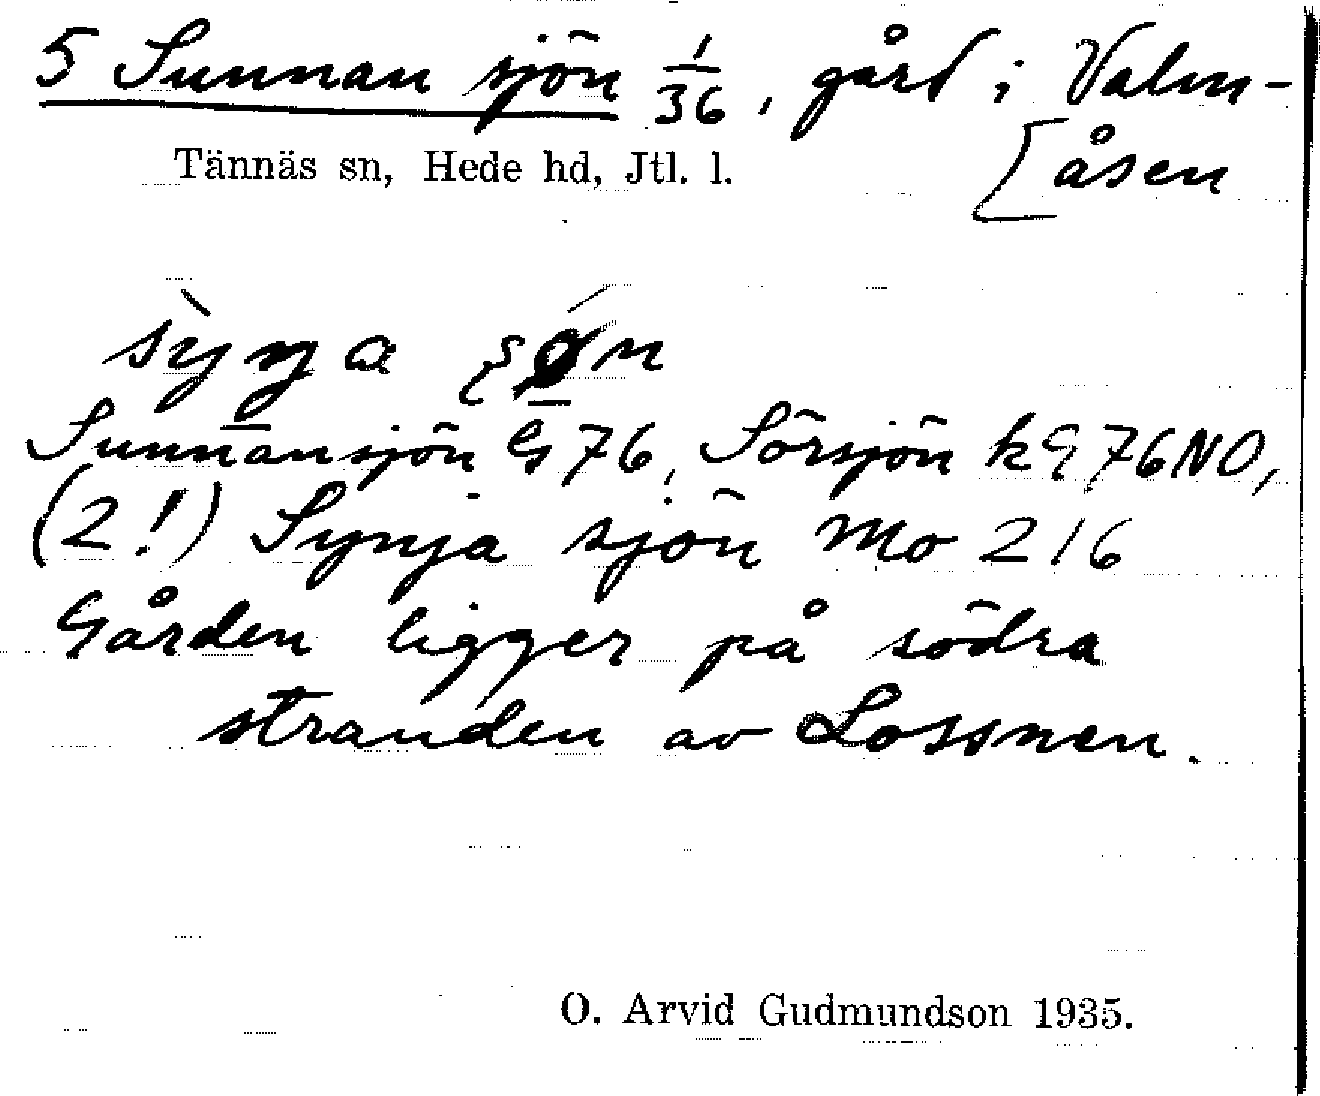 5 Sunnan sjön 1/36, gård i Valm-
[åsen
Tännäs sn, Hede hd, Jtl. l.
Sunnansjön G 76, Sörsjön k9 76NO,
(2!) Synja sjön Mo 216
Gården ligger på södra
stranden av Lossnen.
O. Arvid Gudmundson 1935.